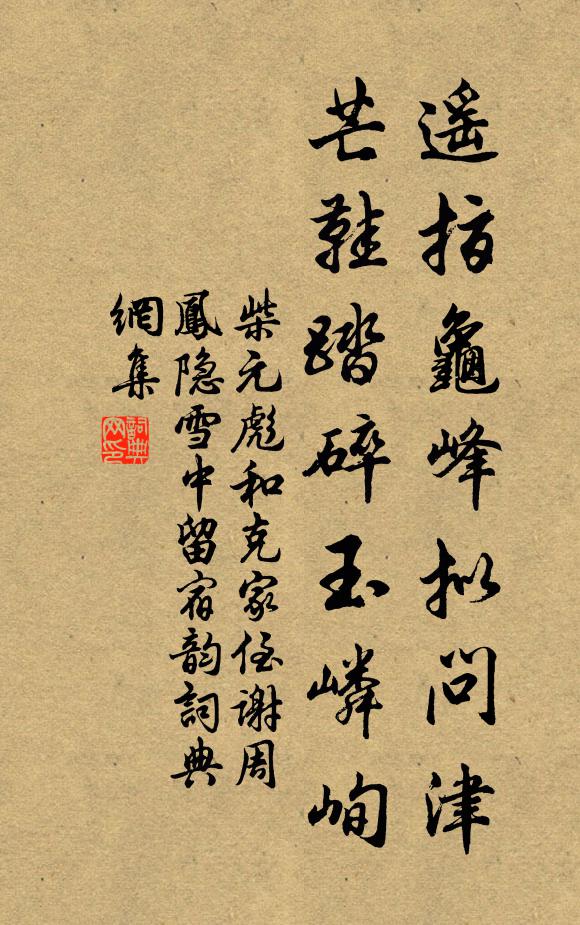 遥指龜峰拟問津
芒鞋踏碎玉嶙峋
柴元彪和克家侄谢周
鳳隐雪中留宿韵詞典
網集
詞典
网印